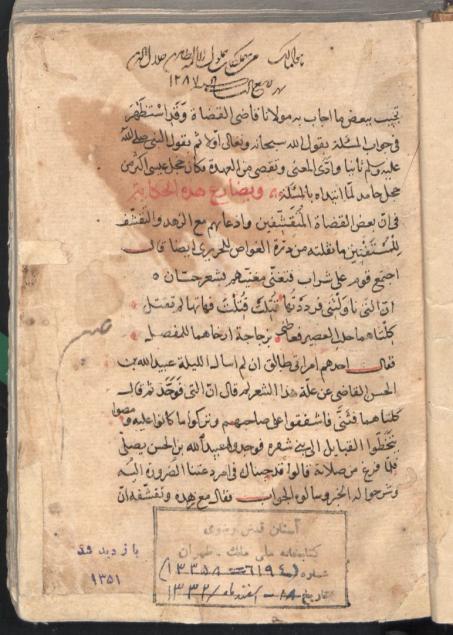 ١٢٨٧
تجيب ببعض ما اجاب به مولانا قاضى القضاة وقد استظهر
فى جواب المسئلة بقول الله سبحانه وتعالى اولا ثم بقول النبى صلى الله
عليه وسلم ثانيا وادى المعنى وتفصى من العهدة فكان خجل عيسى اكثر من
خجل حامد لما ابتداه بالمسئلة ويضارع هذه الحكاية
فى ان بعض القضاة المتقشفين وادعا بهم مع الزهد والتقشف
للمستفتين ما نقلته من درة الغواص للحريرى ايضا قال
اجتمع قوم على شراب فتغنى مغنيهم بشعر حسان
ان التى ناولتنى فرددتها قتلت قتلت فهاتها لم تقتل
كلتاهما حلب العصير فعاطنى بزجاجة ارخاهما للمفصل
فقال احدهم امراتى طالق ان لم اسال الليلة عبيد الله بن
الحسن القاضى عن علة هذا الشعر لم قال ان التى فوحد ثم قال
كلتاهما فثنى فاشفقوا على صاحبهم وتركوا ما كانوا عليه ومضوا
يتخطوا القبايل الى بنى شقره فوجدوا عبيد الله بن الحسن يصلى
فلما فرغ من صلاته قالوا قد جيناك فى امر دعتنا الضرورة اليه
وشرحوا له الخبر وسالوه الجواب فقال مع زهده وتقشفه ان
آستان قدس رضوى
كتابخانه ملى ملك - طهران
شماره
تاريخ
بازديد شد
١٣٥١